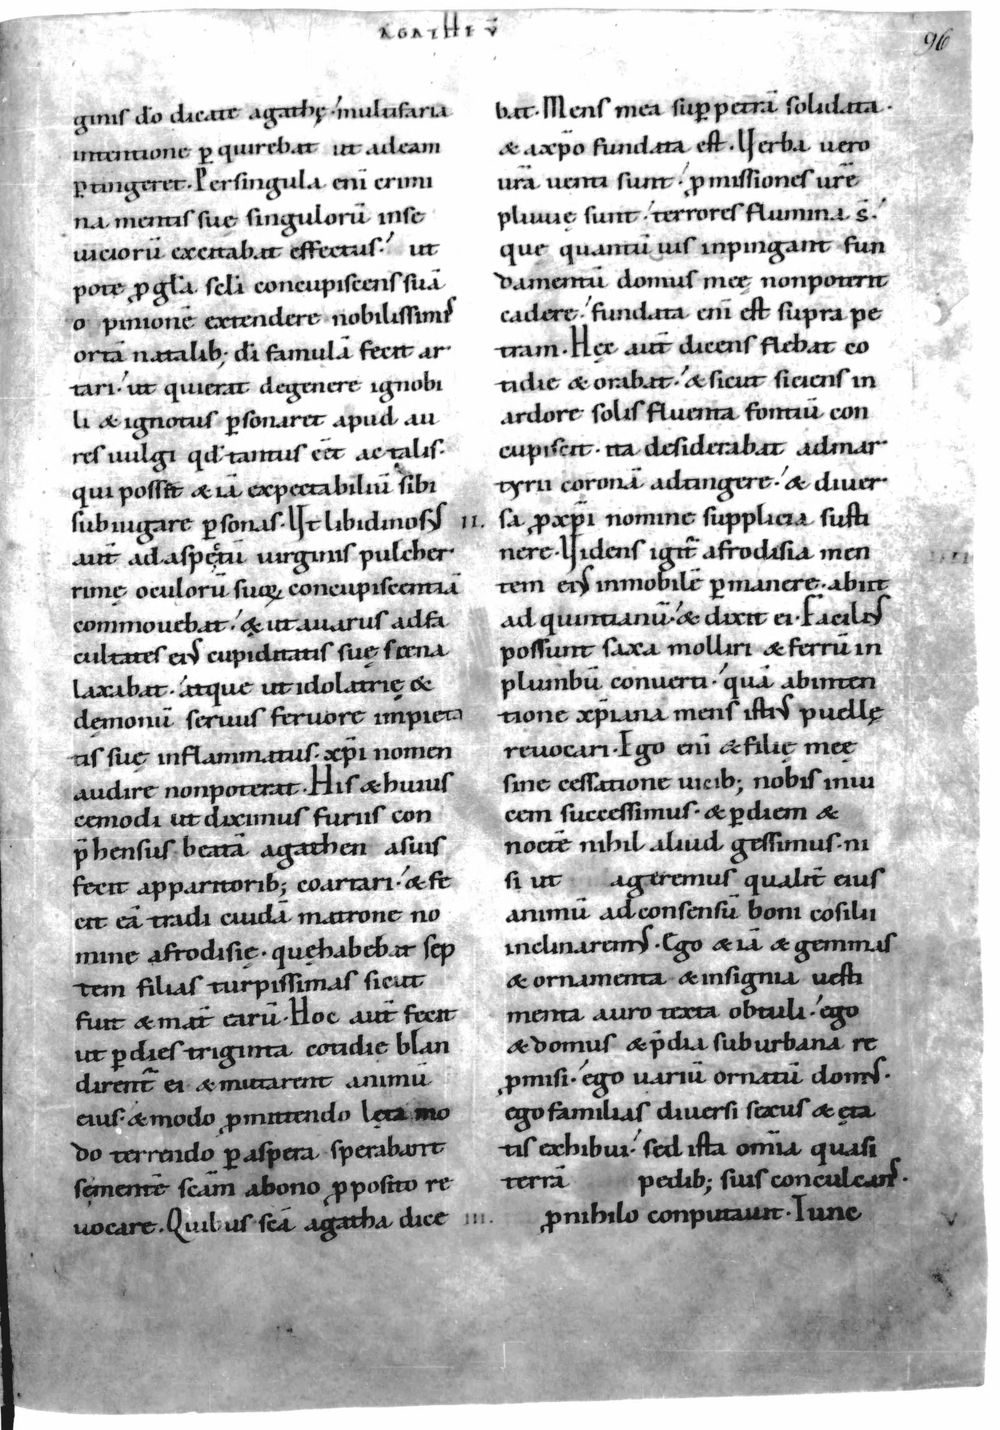 AGATHE V̄
96
ginis dō dicate agathę·́ multifaria
intentione ꝑquirebat ut ad eam
ꝑtingeret· Per singula eni̅ crimi
na mentis sue singuloru̅ in se
uicioru̅ excitabat effectus·́ ut
pote ꝓ gl̅a scl̅i concupiscens sua̅
opinione̅ extendere nobilissimis
orta̅ natalib; di̅ famula̅ fecit ar
tari·́ ut qui erat degenere ignobi
li & ignotus ꝑsonaret apud au
res uulgi qd̅ tantus ee̅t ac talis·
qui posset & ia̅ expectabiliu̅ sibi
subiugare ꝑsonas· Vt libidinosus
aut̅ ad aspectu̅ uirginis pulcher
rimę oculoru̅ suoꝝ concupiscentia̅
commouebat·́ & ut auarus ad fa
cultates eius cupiditatis suę frena
laxabat·́ atque ut idolatrię &
dęmoniu̅ seruus feruore impieta
tis suę inflammatus· xp̅i nomen
audire non poterat· His & huius
cemodi ut diximus furiis con
p̅hensus beata̅ agathen a suis
fecit apparitorib; coartari·́ & fe
cit ea̅ tradi cuida̅ matrone no
mine afrodisię· quę habebat sep
tem filias turpissimas sicut
fuit & mat̅ earu̅· Hoc aut̅ fecit
ut ꝑ dies triginta cotidie blan
dirent̅ ei & mutarent animu̅
eius· & modo ꝓmittendo lęta mo
do terrendo ꝑ aspera sperabant
se mente̅ sca̅m a bono ꝓposito re
uocare· Quibus sca̅ agatha dice
bat· Mens mea suꝑ petra̅ solidata·
& a xp̅o fundata est· Verba uero
ura̅ uenti sunt·́ ꝓmissiones ure̅
pluuię sunt·́ terrores flumina s̅·́
que quantu̅uis inpingant fun
damentu̅ domus meę non poterit
cadere·́ fundata eni̅ est supra pe
tram· Hęc aut̅ dicens flebat co
tidie & orabat·́ & sicut siciens in
ardore solis fluenta fontiu̅ con
cupiscit· ita desiderabat ad mar
tyrii corona̅ adtingere·́ & diuer
II. sa ꝓ xp̅i nomine supplicia susti
nere· Videns igit̅ afrodisia men
tem eius inmobile̅ ꝑmanere· abiit
ad quintianu̅·́ & dixit ei· Facilius
possunt saxa molliri & ferru̅ in
plumbu̅ conuerti·́ qua̅ ab inten
tione xp̅iana mens istius puellę
reuocari· Ego eni̅ & filię meę
sine cessatione uicib; nobis inui
cem successimus· & ꝑ diem &
nocte̅ nihil aliud gessimus· ni
si ut ageremus qualit̅ eius
animu̅ ad consensu̅ boni co̅silii
inclinaremus· Ego & ia̅ & gemmas
& ornamenta & insignia uesti
menta auro texta obtuli·́ ego
& domus & p̅dia suburbana re
ꝓmisi·́ ego uariu̅ ornatu̅ domus·
ego familias diuersi sexus & ęta
tis exhibui·́ sed ista om̅ia quasi
terra̅ pedib; suis conculcans·
III. ꝓ nihilo conputauit· Tunc